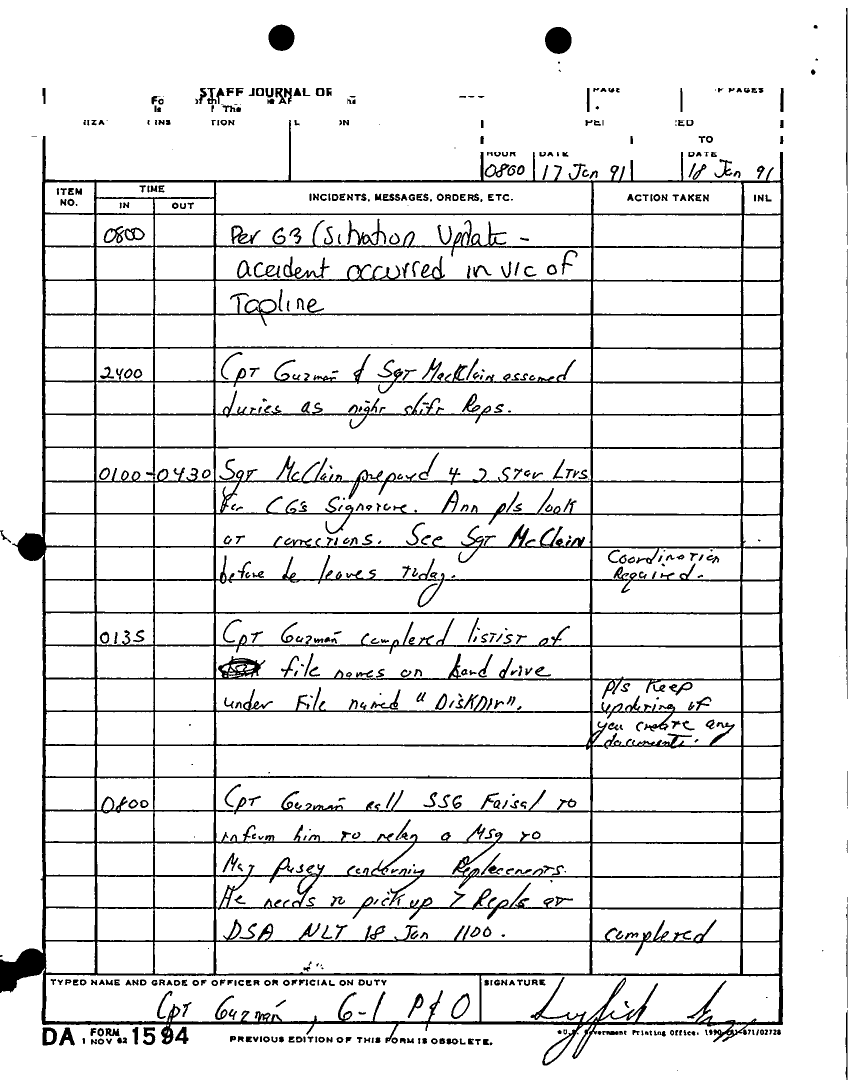 STAFF JOURNAL OR
PAGE
PAGES
TO
HOUR DATE DATE
0800 17 Jan 91 18 Jan 91
ITEM NO. TIME INCIDENTS, MESSAGES, ORDERS, ETC. ACTION TAKEN INL
IN OUT
0800 Per G3 (Situation Update -
accident occurred in vic of
Tapline
2400 Cpt Guzmán & Sgt MacKlain assumed
duties as night shift Reps.
0100-0430 Sgt McClain prepared 4 2 Star Ltrs
for CG's Signature. Ann pls look
at corrections. See Sgt McClain
before he leaves today.
Coordination
Required.
0135 Cpt Guzmán completed listist of
file names on hard drive
under File named "DiskDir".
pls keep
updating if
you create any
documents.
0800 Cpt Guzmán call SSG Faisal to
inform him to relay a Msg to
Maj Pusey concerning Replacements.
He needs to pick up 7 Repls at
DSA NLT 18 Jan 1100. completed
TYPED NAME AND GRADE OF OFFICER OR OFFICIAL ON DUTY SIGNATURE
Cpt Guzmán, G-1 P&O
DA FORM 1594
1 NOV 62
PREVIOUS EDITION OF THIS FORM IS OBSOLETE.
Government Printing Office: 871/02728